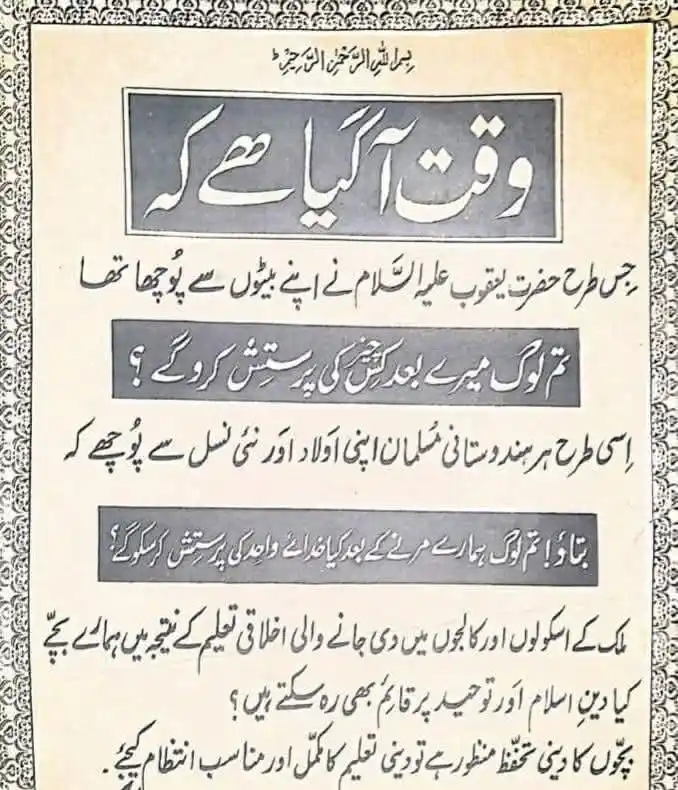 بسم اللہ الرحمٰن الرحیم ط
وقت آگیا ھے کہ
جِس طرح حضرت یعقوب علیہ السَّلام نے اپنے بیٹوں سے پُوچھا تھا
تم لوگ میرے بعد کِس چیز کی پرستِش کرو گے ؟
اِسی طرح ہر ہندوستانی مُسلمان اپنی اَولاد اَور نئی نسل سے پُوچھے کہ
بتاؤ! تم لوگ ہمارے مرنے کے بعد کیا خدائے واحِد کی پرستِش کر سکو گے؟
ملک کے اسکولوں اور کالجوں میں دی جانے والی اخلاقی تعلیم کے نتیجہ میں ہمارے بچّے
کیا دینِ اسلام اَور توحید پر قائِم بھی رہ سکتے ہیں ؟
بچّوں کا دینی تحفّظ منظور ہے تو دینی تعلیم کا مکمّل اور مناسب انتظام کیجئے .